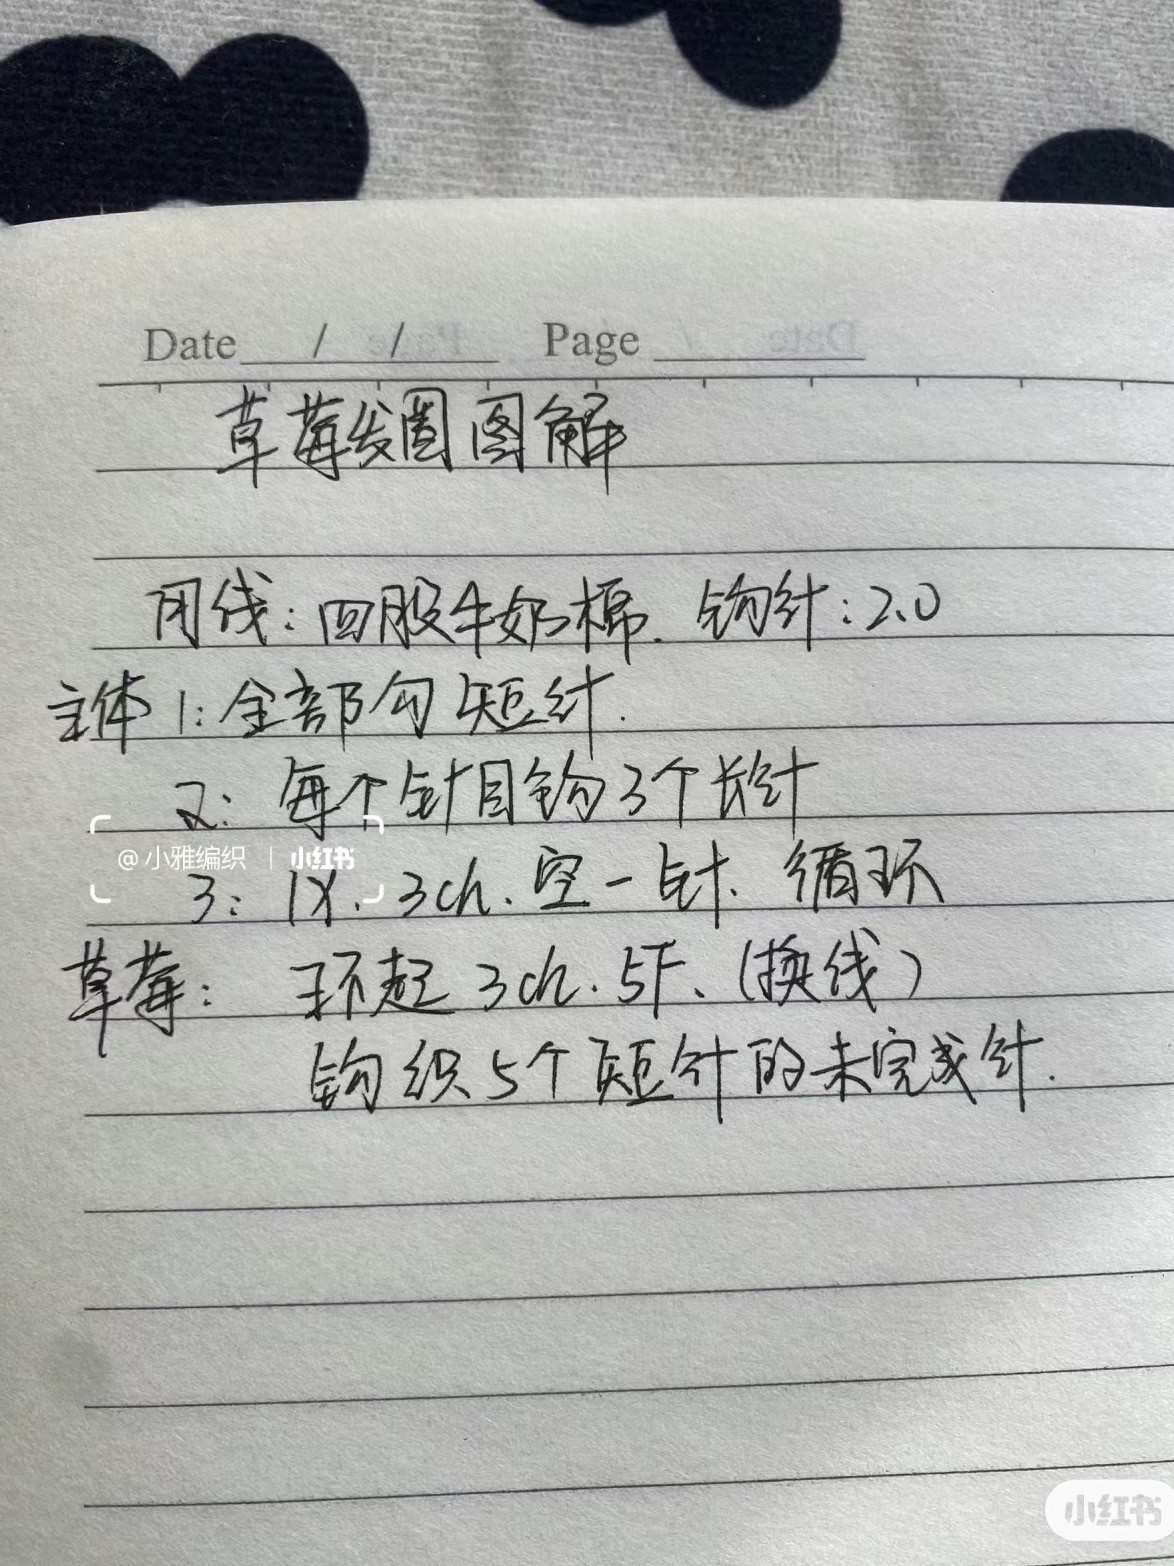 Date / / Page
草莓发圈图解
用线：四股牛奶棉. 钩针：2.0
主体 1：全部勾短针.
2：每个针目钩3个长针
@小雅编织 | 小红书
3：1X. 3ch. 空一针. 循环
草莓： 环起 3ch. 5F、(换线)
钩织5个短针的未完成针.
小红书